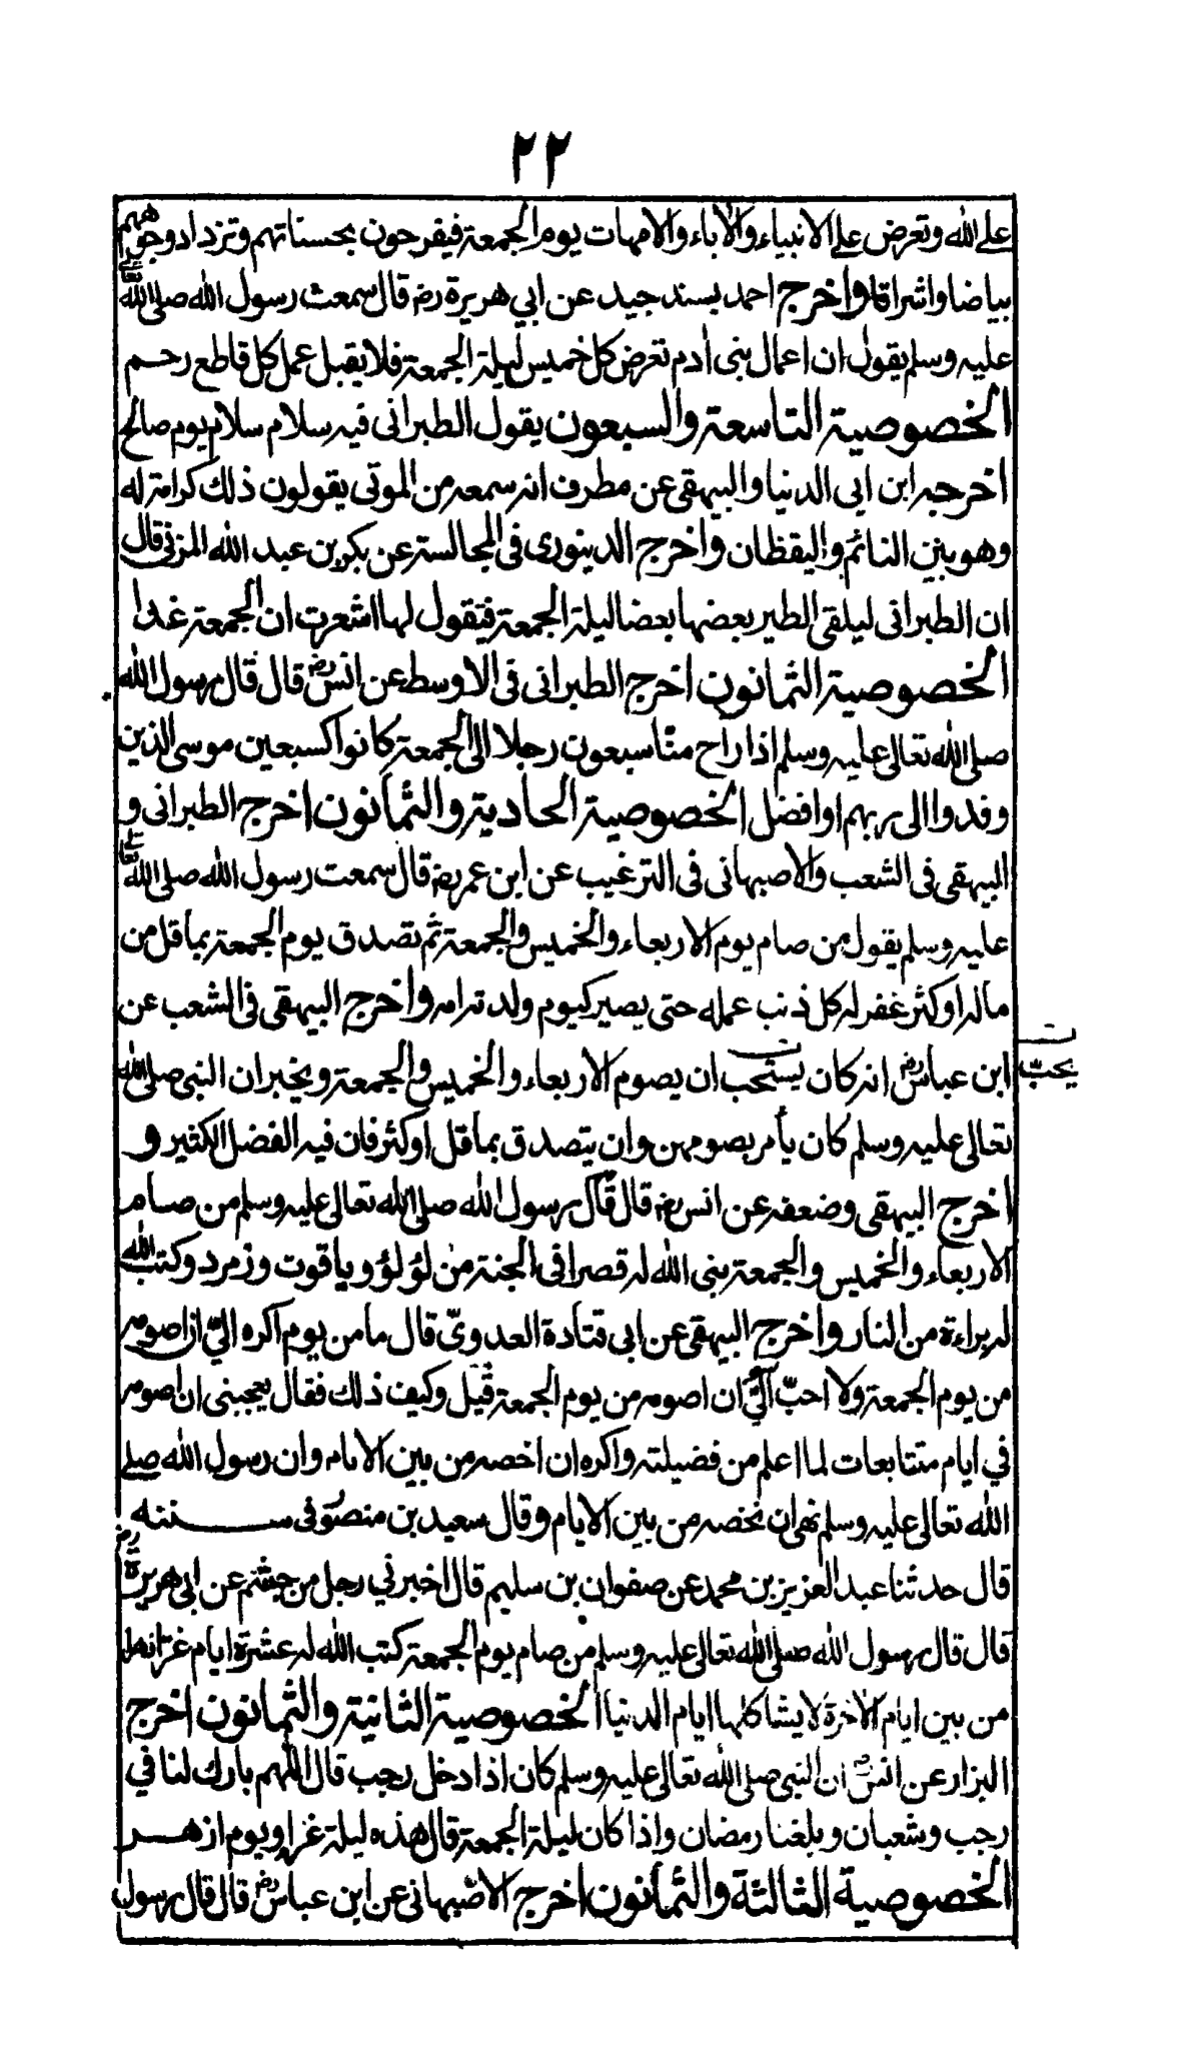 ٢٢
على الله وتعرض على الانبياء والاباء والامهات يوم الجمعة فيفرحون بحسناتهم وتزداد وجوههم
بياضا واشراقا واخرج احمد بسند جيد عن ابي هريرة رض قال سمعت رسول الله صلى الله تعالى
عليه وسلم يقول ان اعمال بنى أدم تعرض كل خميس ليلة الجمعة فلا يقبل عمل كل قاطع رحم
الخصوصية التاسعة والسبعون يقول الطبرانى فيه سلام سلام يوم صالح
اخرجه ابن ابى الدنيا والبيهقى عن مطرف انه سمعه من الموتى يقولون ذلك كرامة له
وهو بين النائم واليقظان واخرج الدينورى فى المجالسة عن بكر بن عبد الله المزنى قال
ان الطبرانى ليلقى الطير بعضها بعضا ليلة الجمعة فتقول لها اشعرت ان الجمعة غدا
الخصوصية الثمانون اخرج الطبرانى فى الاوسط عن انس رض قال قال رسول الله
صلى الله تعالى عليه وسلم اذا راح منا سبعون رجلا الى الجمعة كانوا كسبعين موسى الذين
وفدوا الى ربهم او افضل الخصوصية الحادية والثمانون اخرج الطبرانى و
البيهقى فى الشعب والاصبهانى فى الترغيب عن ابن عمر رض قال سمعت رسول الله صلى الله تعالى
عليه وسلم يقول من صام يوم الاربعاء والخميس والجمعة ثم تصدق يوم الجمعة بما قل من
ماله او كثر غفر له كل ذنب عمله حتى يصير كيوم ولدته امه واخرج البيهقى فى الشعب عن
ابن عباس رض انه كان يستحب ان يصوم الاربعاء والخميس والجمعة ويخبر ان النبى صلى الله
يحبّ
تعالى عليه وسلم كان يأمر بصومهن وان يتصدق بما قل او كثر فان فيه الفضل الكثير و
اخرج البيهقى وضعفه عن انس رض قال قال رسول الله صلى الله تعالى عليه وسلم من صام
الاربعاء والخميس والجمعة بنى الله له قصرا فى الجنة من لؤلؤ وياقوت وزمرد وكتب الله
له براءة من النار واخرج البيهقى عن ابى قتادة العدوىّ قال ما من يوم اكره الىّ ان اصومه
من يوم الجمعة ولا احبّ الىّ ان اصومه من يوم الجمعة قيل وكيف ذلك فقال يعجبنى ان اصومه
في ايام متتابعات لما اعلم من فضيلته واكره ان اخصه من بين الايام وان رسول الله صلى
الله تعالى عليه وسلم نهى ان نخصه من بين الايام وقال سعيد بن منصور فى سننه
قال حدثنا عبد العزيز بن محمد عن صفوان بن سليم قال اخبرني رجل من جشم عن ابى هريرة رض
قال قال رسول الله صلى الله تعالى عليه وسلم من صام يوم الجمعة كتب الله له عشرة ايام
من بين ايام الاخرة لا يشاكلها ايام الدنيا الخصوصية الثانية والثمانون اخرج
البزار عن انس رض ان النبى صلى الله تعالى عليه وسلم كان اذا دخل رجب قال اللهم بارك لنا في
رجب وشعبان وبلغنا رمضان واذا كان ليلة الجمعة قال هذه ليلة غرا ويوم ازهر
الخصوصية الثالثة والثمانون اخرج الاصبهانى عن ابن عباس رض قال قال رسول